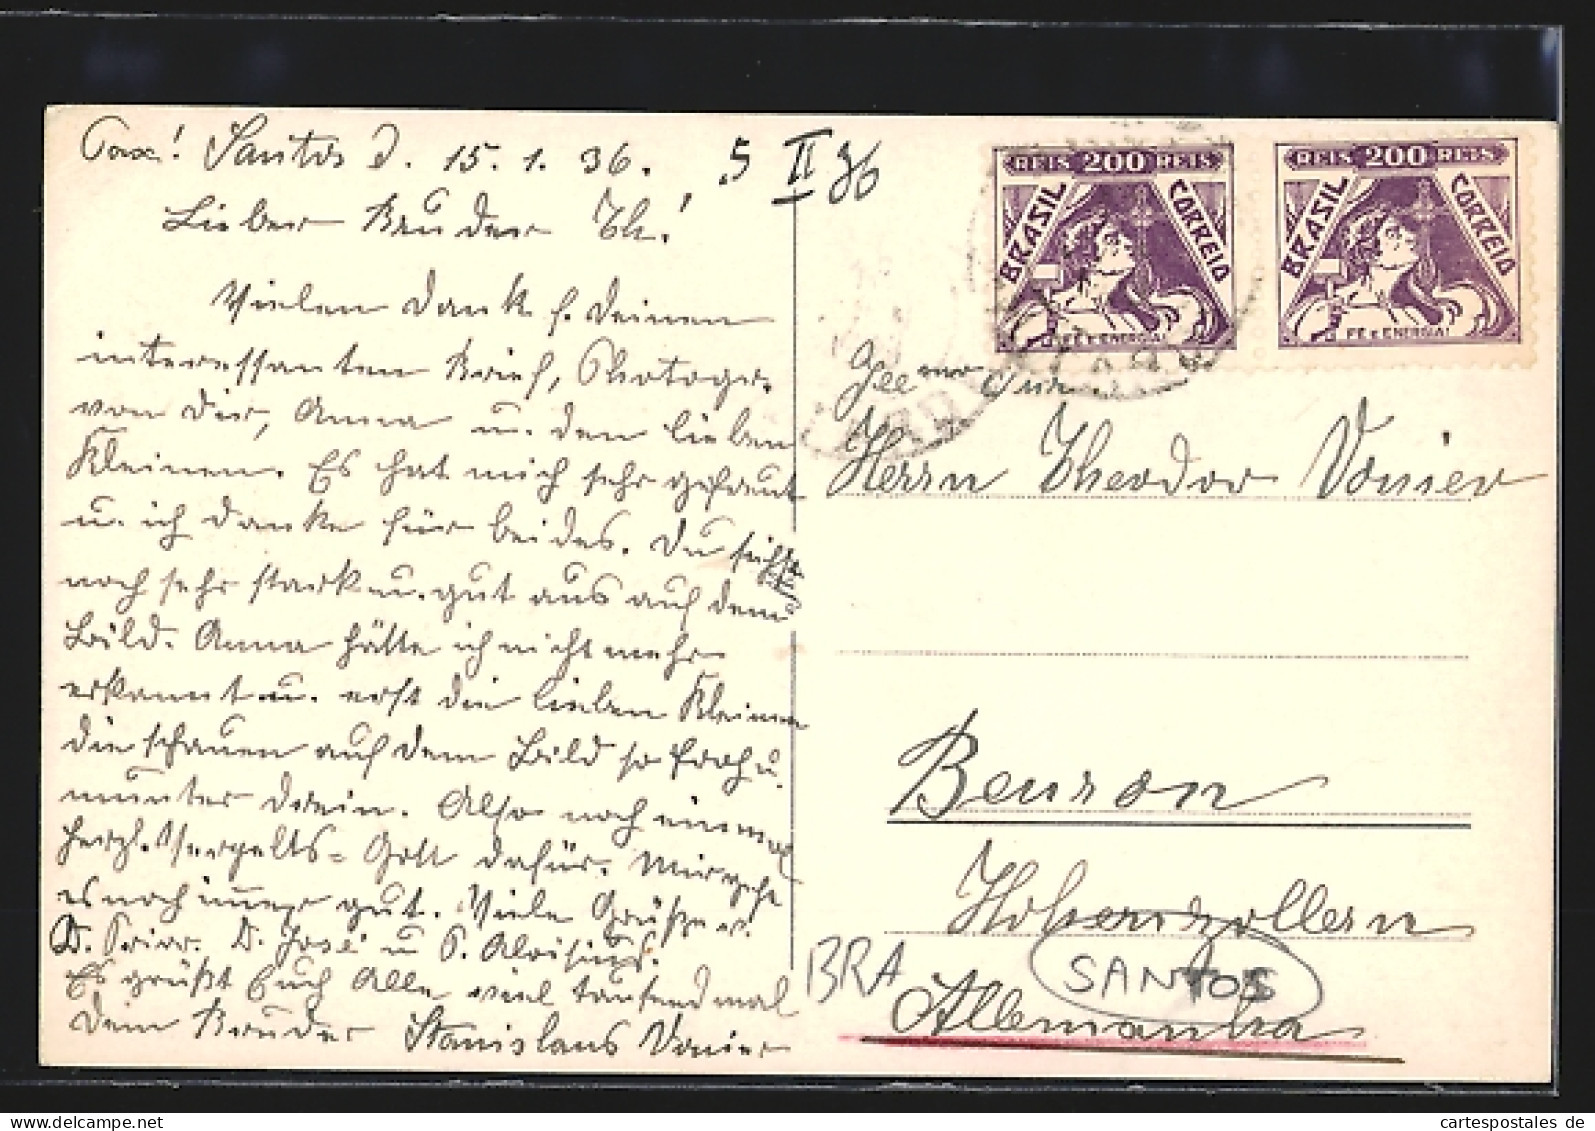 Pax! Santos d. 15.1.36.
5 II 36
Lieber Bruder Th.!
Vielen Dank f. Deinen
interessanten Brief, Photogr.
von Dir, Anna u. den lieben
Kleinen. Es hat mich sehr gefreut
u. ich danke für beides. Du siehst
noch sehr stark u. gut aus auf dem
Bild. Anna hätte ich nicht mehr
erkannt u. erst die lieben Kleinen
die schauen auf dem Bild so froh u.
munter darein. Also noch einmal
herzl. Vergelts-Gott dafür. Mir geht
es noch immer gut. Viele Grüße v.
D. Prior. D. José u P. Aloisius.
Es grüßt Euch Alle viel tausendmal
Dein Bruder Stanislaus Vonier
REIS 200 REIS
BRASIL CORREIO
FÉ E ENERGIA!
REIS 200 REIS
BRASIL CORREIO
FÉ E ENERGIA!
Herrn Theodor Vonier
Beuron
Hohenzollern
BRA
SANTOS
Allemanha
cartespostales de